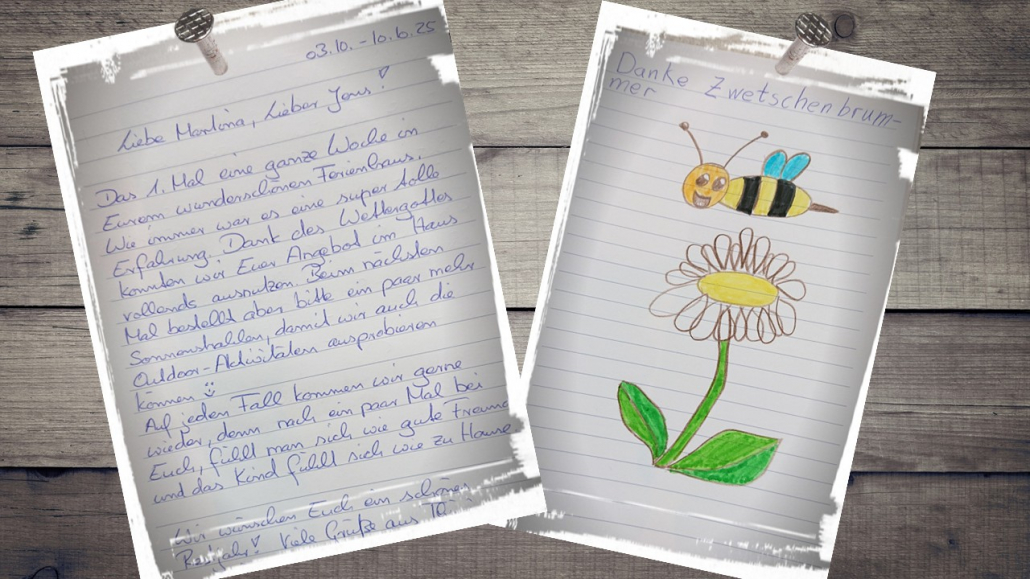 03.10. - 10.10.25
Liebe Martina, Lieber Jens!
Das 1. Mal eine ganze Woche in
Eurem wunderschönen Ferienhaus.
Wie immer war es eine super tolle
Erfahrung. Dank des Wettergottes
konnten wir Euer Angebot im Haus
vollends ausnutzen. Beim nächsten
Mal bestellt aber bitte ein paar mehr
Sonnenstrahlen, damit wir auch die
Outdoor-Aktivitäten ausprobieren
können
Auf jeden Fall kommen wir gerne
wieder, denn nach ein paar Mal bei
Euch, fühlt man sich wie gute Freunde
und das Kind fühlt sich wie zu Hause
Wir wünschen Euch ein schönes
Restjahr! Viele Grüße aus
Danke Zwetschenbrum-
mer